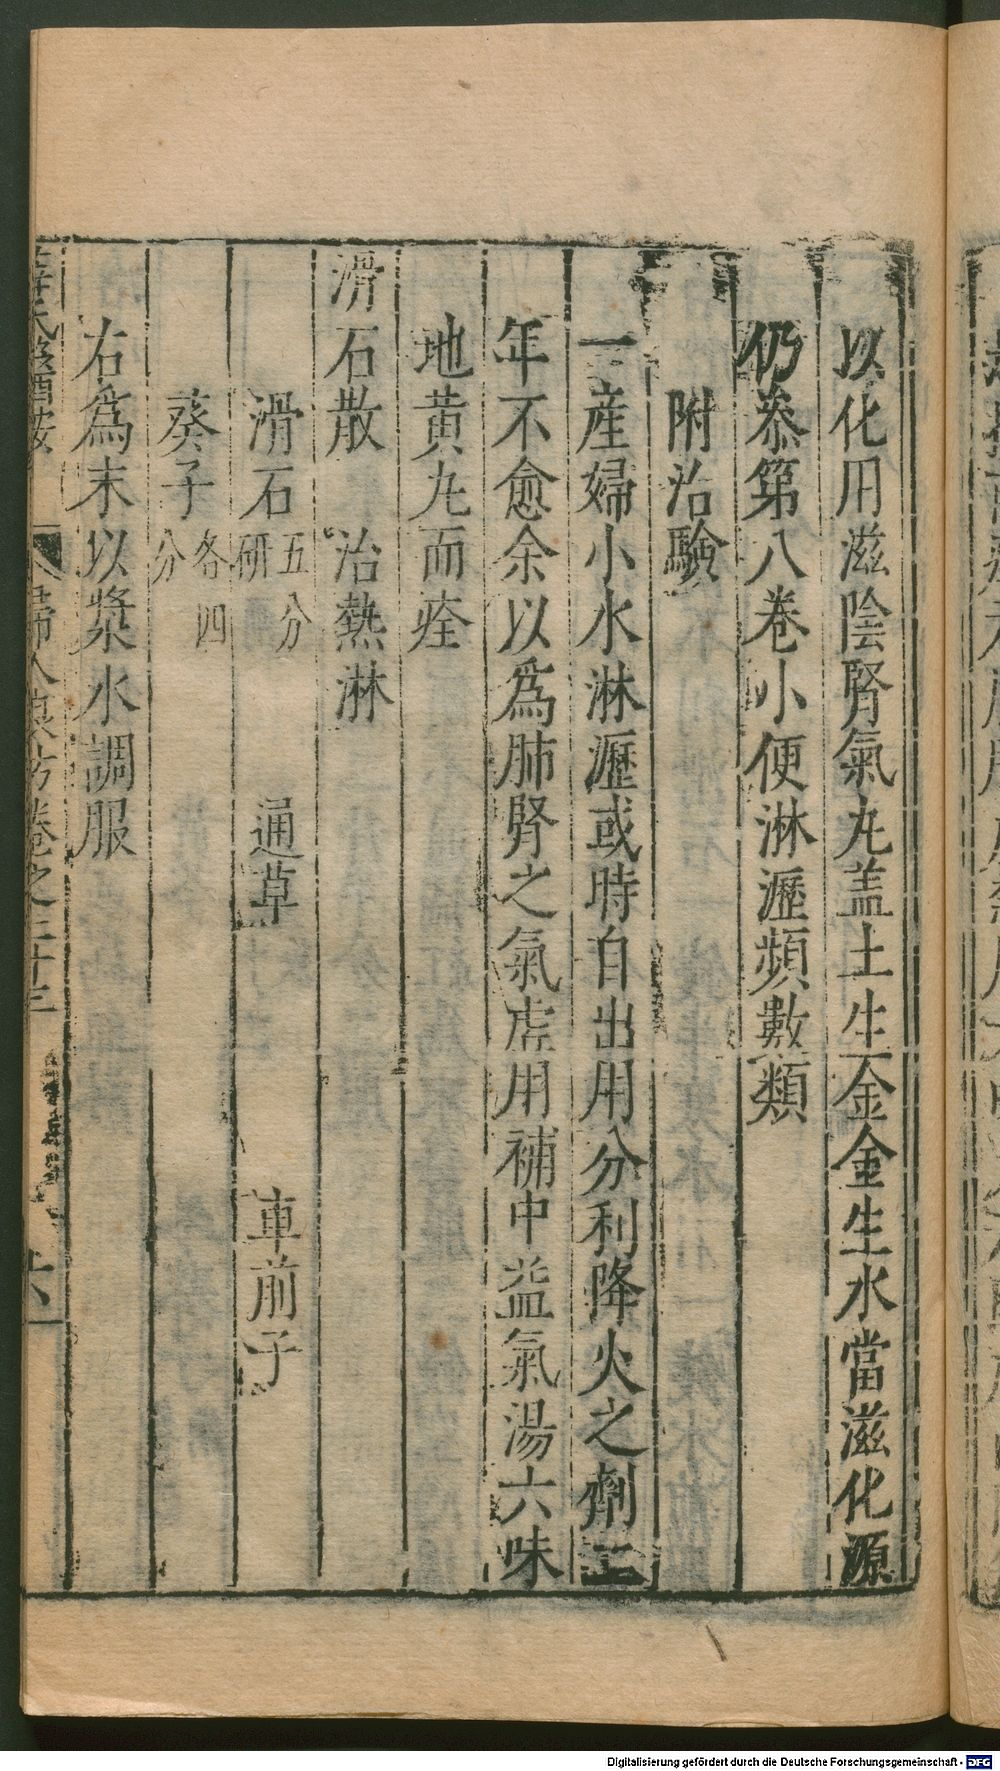 以化用滋陰腎氣丸盖土生金金生水當滋化源
仍叅第八卷小便淋瀝頻數類
附治驗
一產婦小水淋瀝或時自出用分利降火之劑二
年不愈余以爲肺腎之氣虛用補中益氣湯六味
地黄丸而痊
滑石散 治熱淋
滑石五分研 通草 車前子
葵子各四分
右爲末以漿水調服
婦人良方卷之二十三
Digitalisierung gefördert durch die Deutsche Forschungsgemeinschaft - DFG